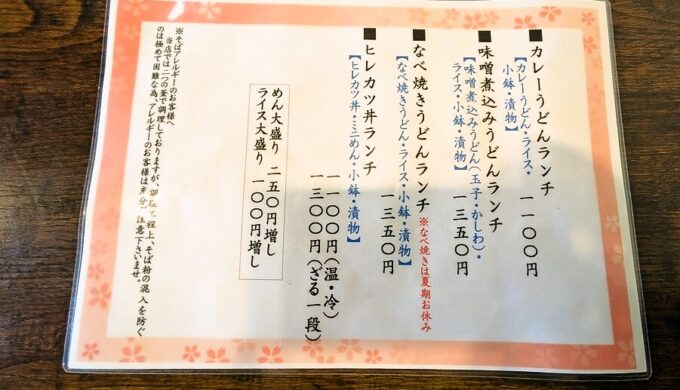 ■カレーうどんランチ 一一〇〇円
【カレーうどん・ライス・
小鉢・漬物】
■味噌煮込みうどんランチ 一三五〇円
【味噌煮込みうどん(玉子・かしわ)・
ライス・小鉢・漬物】
■なべ焼きうどんランチ 一三五〇円
※なべ焼きは夏期お休み
【なべ焼きうどん・ライス・小鉢・漬物】
■ヒレカツ丼ランチ
【ヒレカツ丼・ミニめん・小鉢・漬物】
一一〇〇円(温・冷)
一三〇〇円(ざる一段)
めん大盛り 二五〇円増し
ライス大盛り 一〇〇円増し
※そばアレルギーのお客様へ
当店では二つの釜で調理しておりますが、程上、そば粉の混入を防ぐ
のは極めて困難な為、アレルギーのお客様は充分ご注意下さいませ。